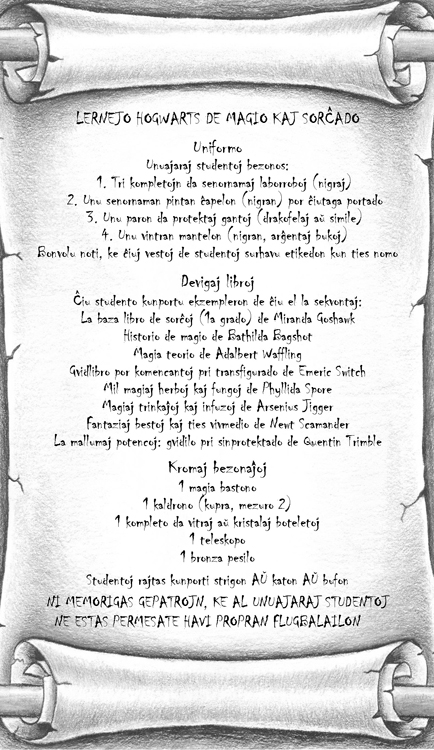 LERNEJO HOGWARTS DE MAGIO KAJ SORĈADO
Uniformo
Unuajaraj studentoj bezonos:
1. Tri kompletojn da senornamaj laborroboj (nigraj)
2. Unu senornaman pintan ĉapelon (nigran) por ĉiutaga portado
3. Unu paron da protektaj gantoj (drakofelaj aŭ simile)
4. Unu vintran mantelon (nigran, arĝentaj bukoj)
Bonvolu noti, ke ĉiuj vestoj de studentoj surhavu etikedon kun ties nomo
Devigaj libroj
Ĉiu studento kunportu ekzempleron de ĉiu el la sekvontaj:
La baza libro de sorĉoj (1a grado) de Miranda Goshawk
Historio de magio de Bathilda Bagshot
Magia teorio de Adalbert Waffling
Gvidlibro por komencantoj pri transfigurado de Emeric Switch
Mil magiaj herboj kaj fungoj de Phyllida Spore
Magiaj trinkaĵoj kaj infuzoj de Arsenius Jigger
Fantaziaj bestoj kaj ties vivmedio de Newt Scamander
La mallumaj potencoj: gvidilo pri sinprotektado de Quentin Trimble
Kromaj bezonaĵoj
1 magia bastono
1 kaldrono (kupra, mezuro 2)
1 kompleto da vitraj aŭ kristalaj boteletoj
1 teleskopo
1 bronza pesilo
Studentoj rajtas kunporti strigon AŬ katon AŬ bufon
NI MEMORIGAS GEPATROJN, KE AL UNUAJARAJ STUDENTOJ
NE ESTAS PERMESATE HAVI PROPRAN FLUGBALAILON